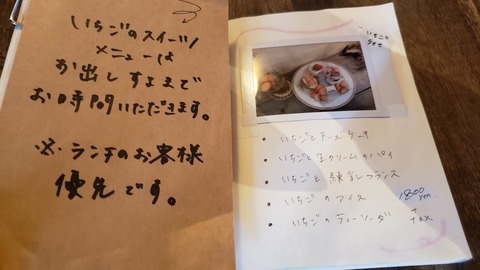 いちごのスイーツ
メニューは
お出しするまで
お時間いただきます。
※ランチのお客様
優先です。
いちご
Set
• いちごとチーズケーキ
• いちごと生クリームのパイ
• いちごと練乳フランス
• いちごのアイス
• いちごのティーソーダ
1800
yen
+tax